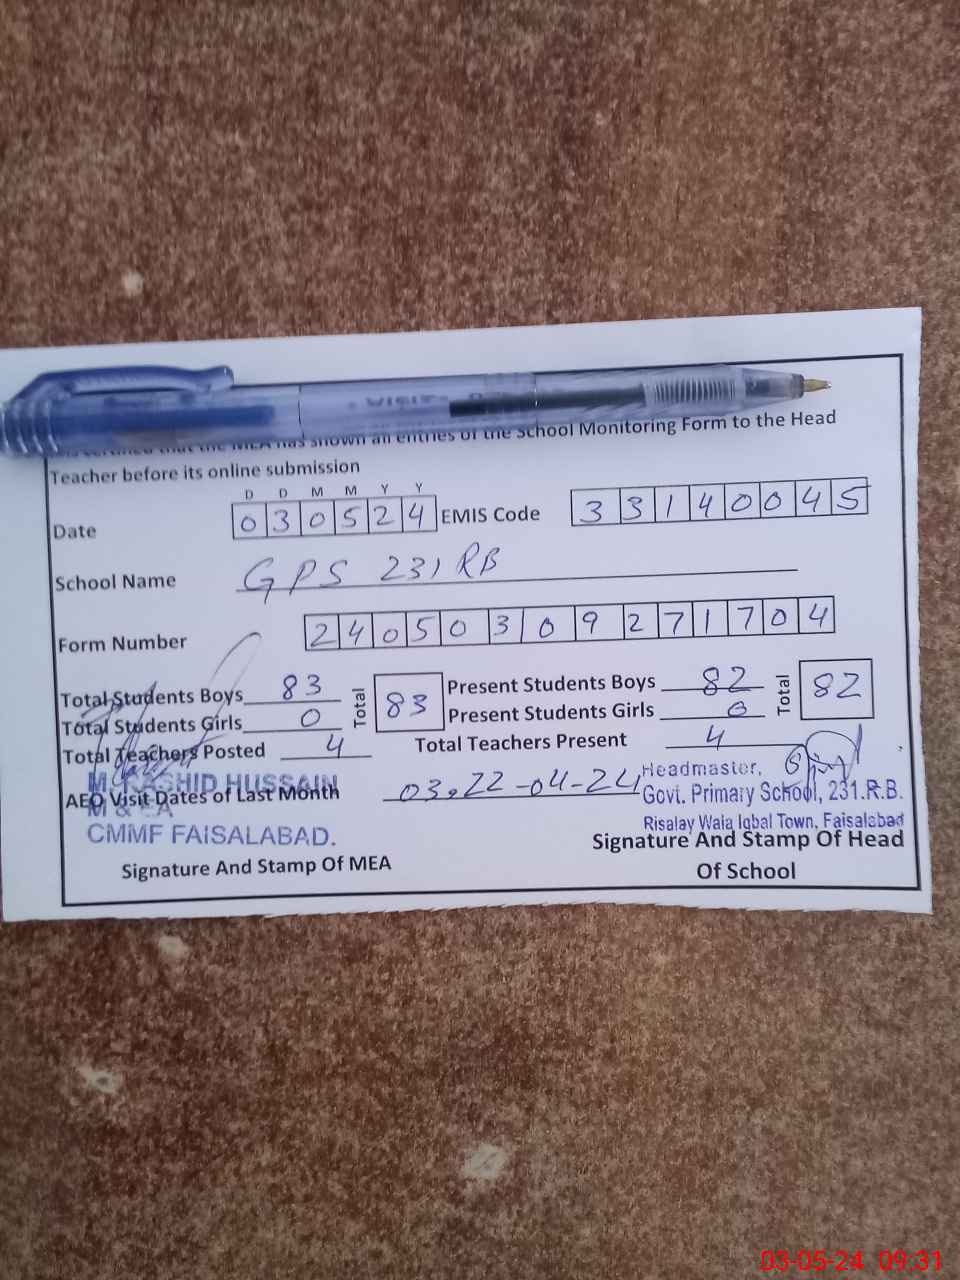 VISIT
certified that the MEA has shown all entries of the School Monitoring Form to the Head
Teacher before its online submission
D D M M Y Y
Date 0 3 0 5 2 4 EMIS Code 3 3 1 4 0 0 4 5
School Name GPS 231 RB
Form Number 2 4 0 5 0 3 0 9 2 7 1 7 0 4
Total Students Boys 83 Total 83 Present Students Boys 82 Total 82
Total Students Girls 0 Present Students Girls 0
Total Teachers Posted 4 Total Teachers Present 4
M. RASHID HUSSAIN Headmaster,
AEO Visit Dates of Last Month 03, 22-04-24 Govt. Primary School, 231.R.B.
M & EA
CMMF FAISALABAD. Risalay Wala Iqbal Town, Faisalabad
Signature And Stamp Of MEA Signature And Stamp Of Head
Of School
03-05-24 09:31